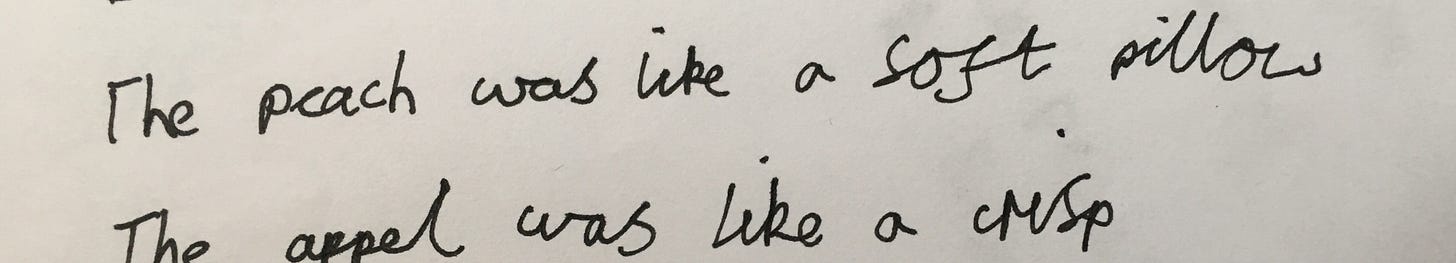 The peach was like a soft pillow
The appel was like a crisp